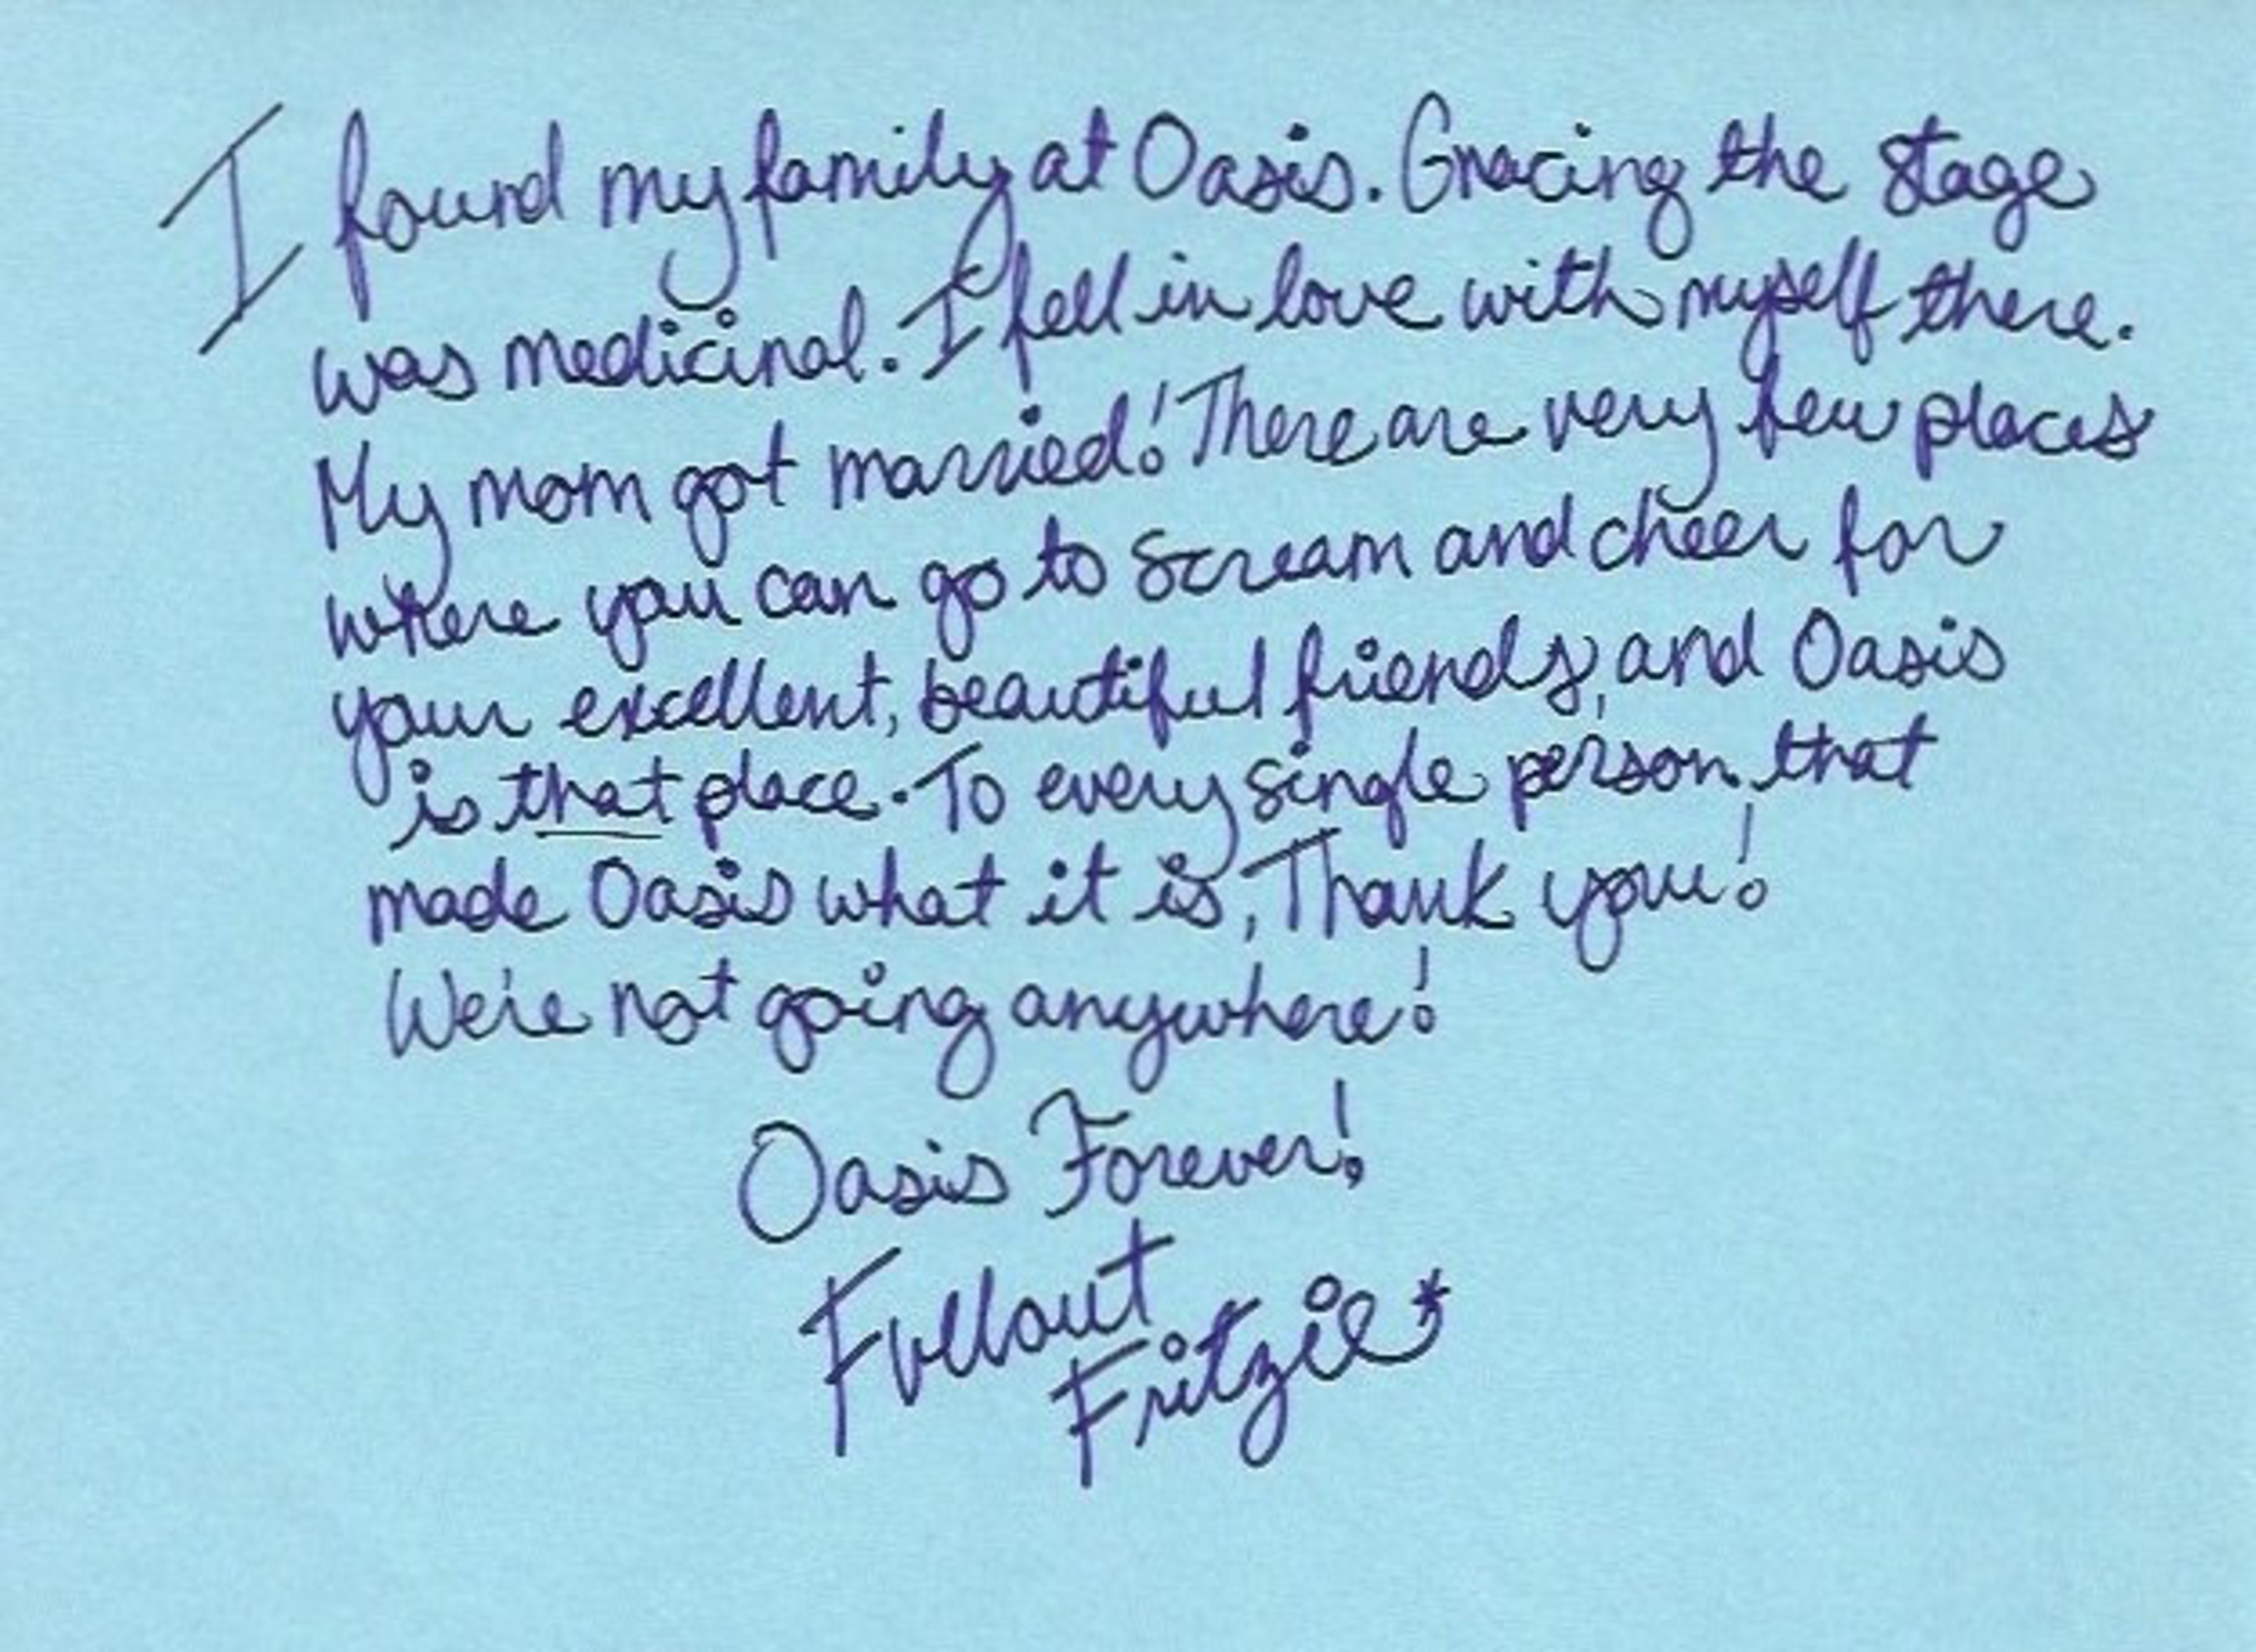 I found my family at Oasis. Gracing the stage
was medicinal. I fell in love with myself there.
My mom got married! There are very few places
where you can go to scream and cheer for
your excellent, beautiful friends, and Oasis
is that place. To every single person that
made Oasis what it is, Thank you!
We're not going anywhere!
Oasis Forever!
Fullout
Fritzie*